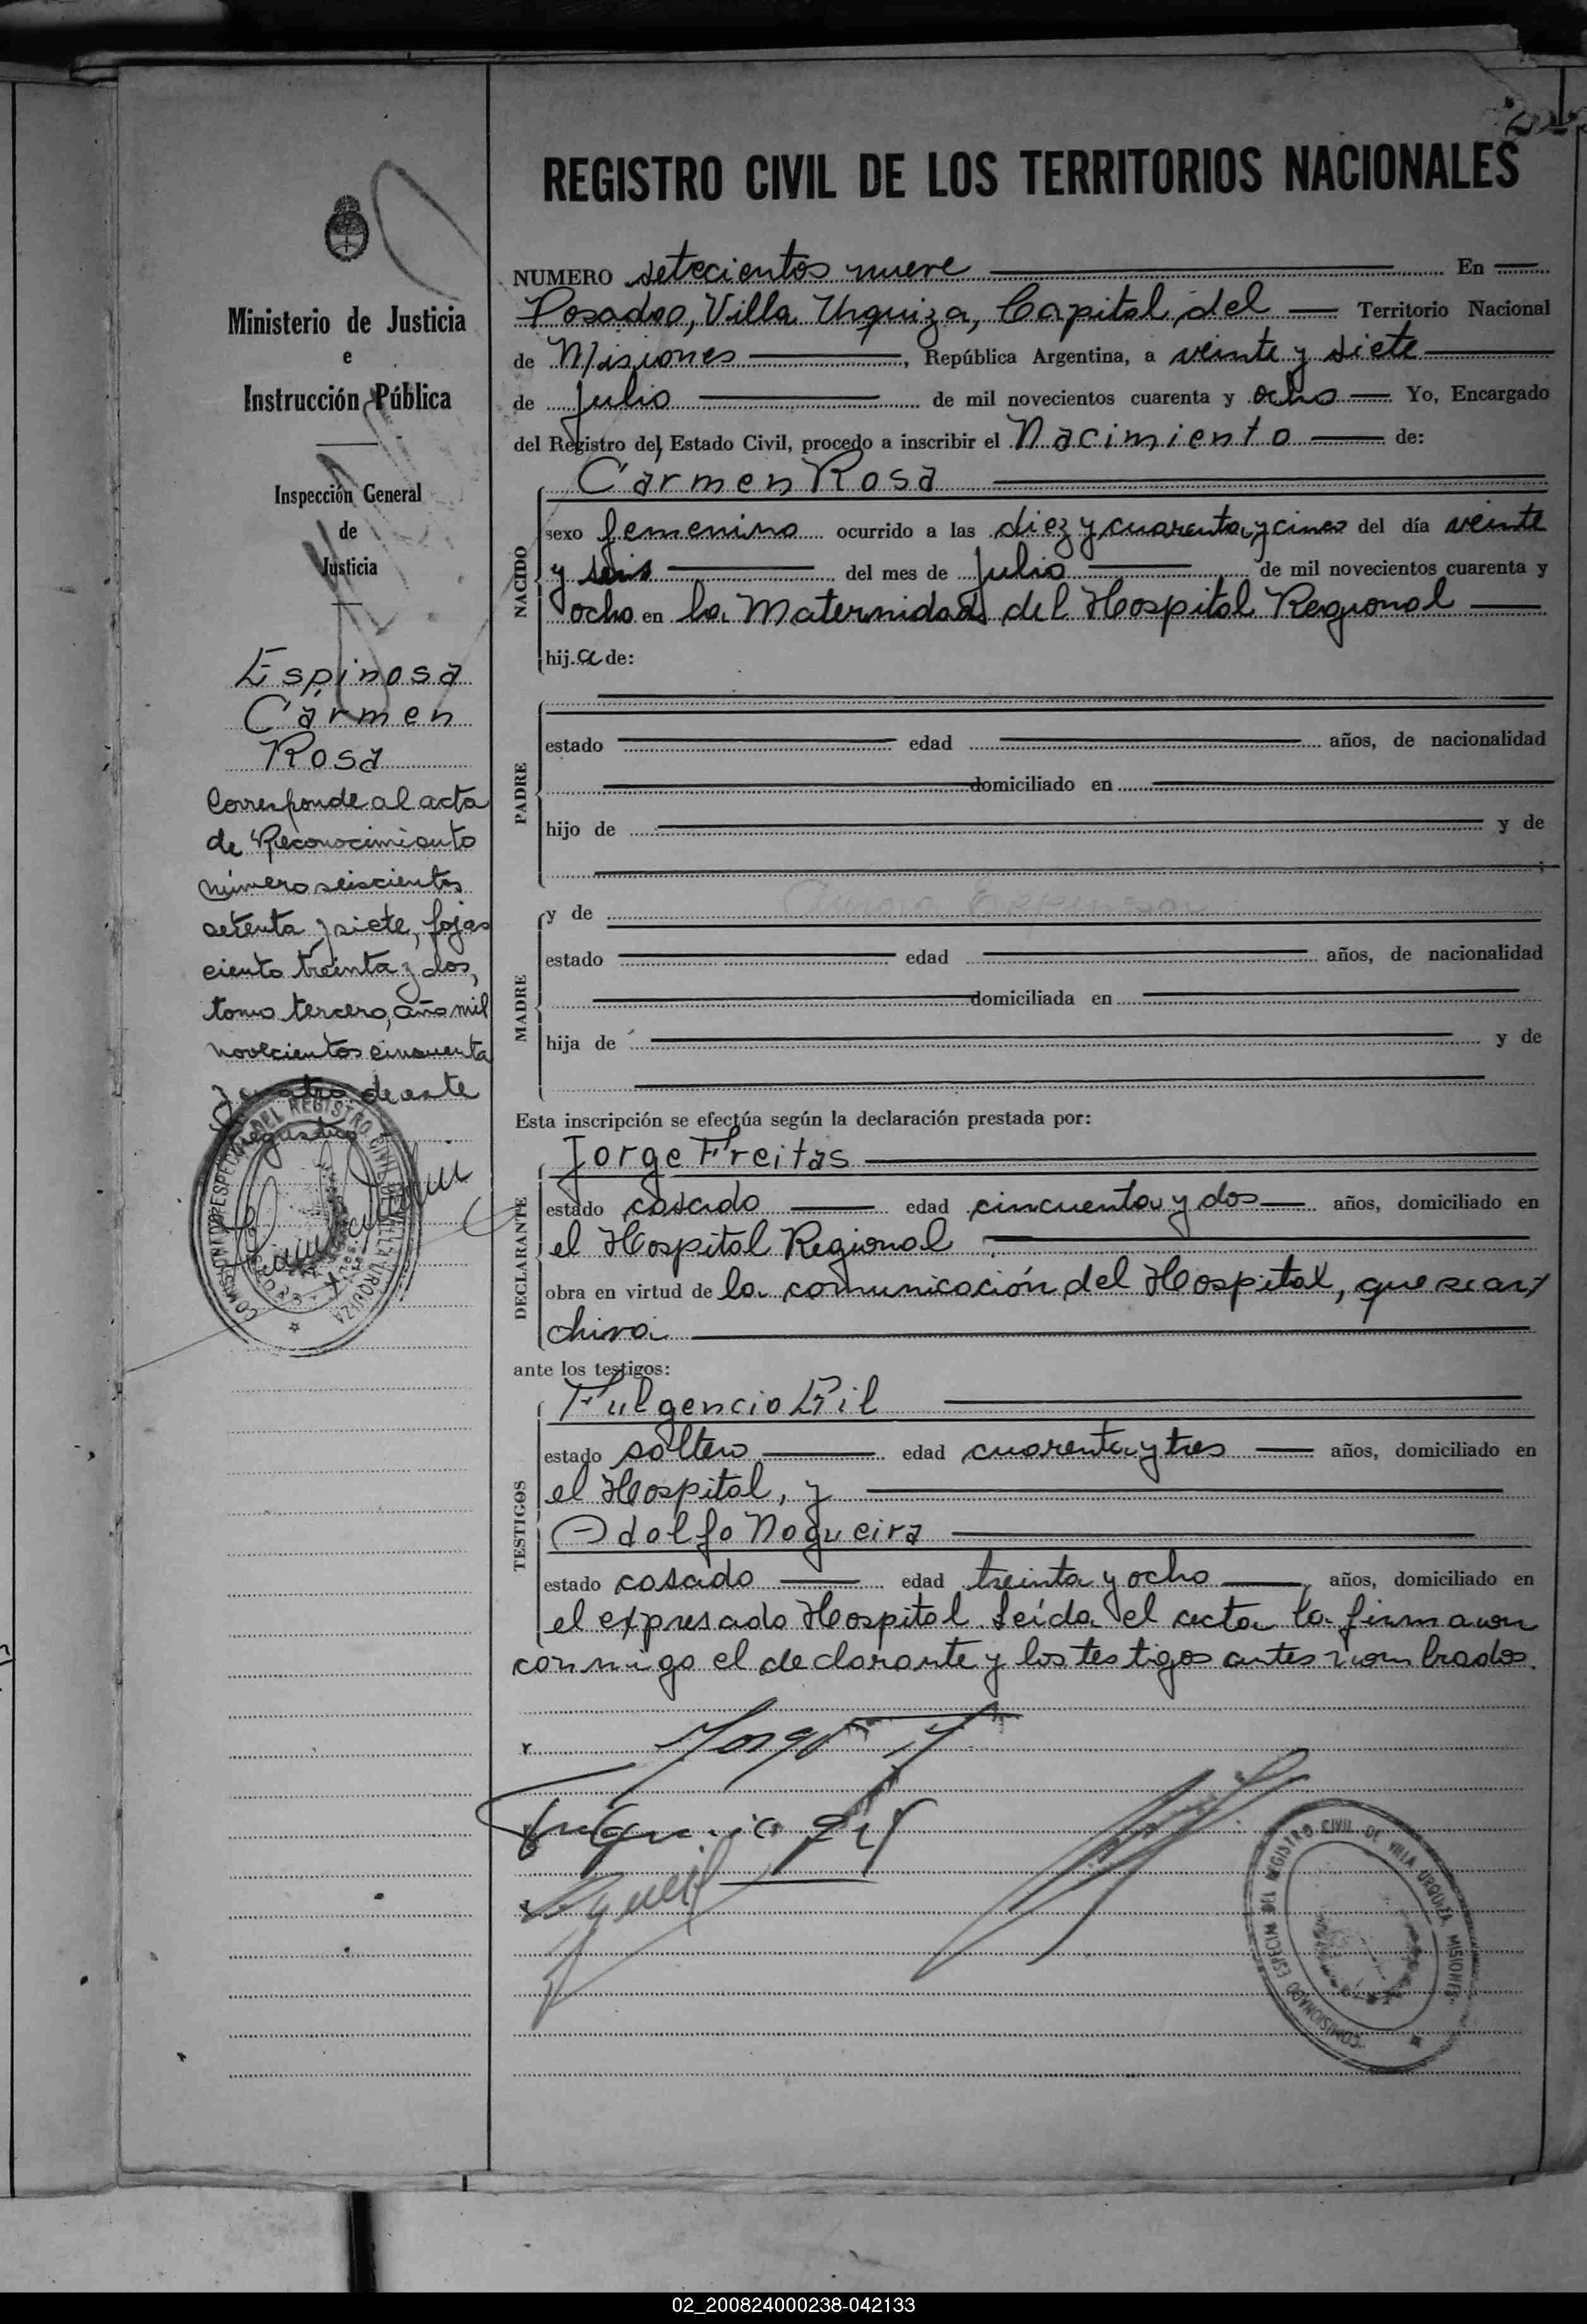 REGISTRO CIVIL DE LOS TERRITORIOS NACIONALES
Ministerio de Justicia
e
Instrucción Pública
Inspección General
de
Justicia
Espinosa
Carmen
Rosa
Corresponde al acta
de Reconocimiento
número seiscientos
setenta y siete, fojas
ciento treinta y dos,
tomo tercero, año mil
novecientos cincuenta
y cuatro de este
registro
COMISIONADO ESPECIAL DEL REGISTRO CIVIL DE VILLA URQUIZA
NUMERO setecientos nueve En
Posadas, Villa Urquiza, Capital del Territorio Nacional
de Misiones, República Argentina, a veinte y siete
de Julio de mil novecientos cuarenta y ocho Yo, Encargado
del Registro del Estado Civil, procedo a inscribir el Nacimiento de:
NACIDO
Carmen Rosa
sexo femenino ocurrido a las diez y cuarenta y cinco del día veinte
y seis del mes de Julio de mil novecientos cuarenta y
ocho en la Maternidad del Hospital Regional
hij.a de:
PADRE
estado edad años, de nacionalidad
domiciliado en
hijo de y de
;
MADRE
y de
estado edad años, de nacionalidad
domiciliada en
hija de y de
Esta inscripción se efectúa según la declaración prestada por:
DECLARANTE
Jorge Freitas
estado casado edad cincuenta y dos años, domiciliado en
el Hospital Regional
obra en virtud de la comunicación del Hospital, que se ar
chiva
ante los testigos:
TESTIGOS
Fulgencio Gil
estado soltero edad cuarenta y tres años, domiciliado en
el Hospital, y
Adolfo Nogueira
estado casado edad treinta y ocho, años, domiciliado en
el expresado Hospital. Leída el acta la firmaron
conmigo el declarante y los testigos antes nombrados.
Jorge F
Fulgencio Gil
COMISIONADO ESPECIAL DEL REGISTRO CIVIL DE VILLA URQUIZA MISIONES
02_200824000238-042133